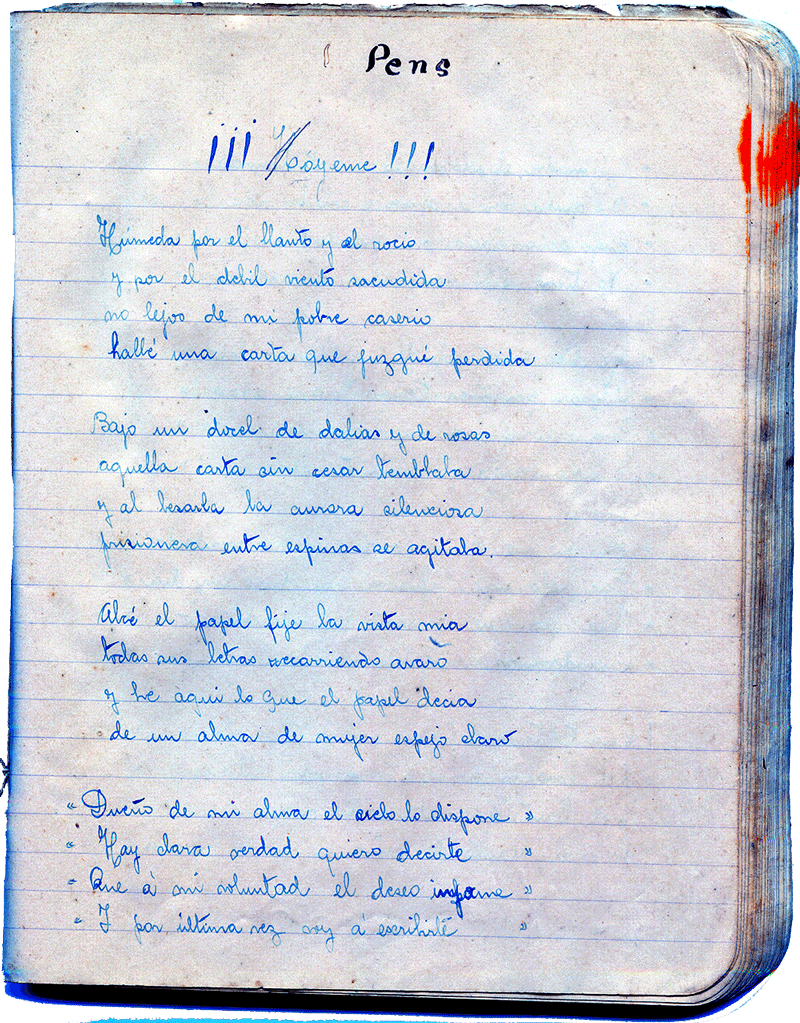 Pens
¡¡¡ Hóyeme !!!
Húmeda por el llanto y el rocio
y por el debil viento sacudida
no lejos de mi pobre caserio
hallé una carta que juzgué perdida
Bajo un docel de dalias y de rosas
aquella carta sin cesar temblaba
y al besarla la aurora silenciosa
prisionera entre espinas se agitaba.
Alcé el papel fije la vista mia
todas sus letras recorriendo avaro
y he aqui lo que el papel decia
de un alma de mujer espejo claro
" Dueño de mi alma el cielo lo dispone "
" Hay clara verdad quiero decirte "
" Que á mi voluntad el deseo impone "
" I por última vez voy á escribirté "